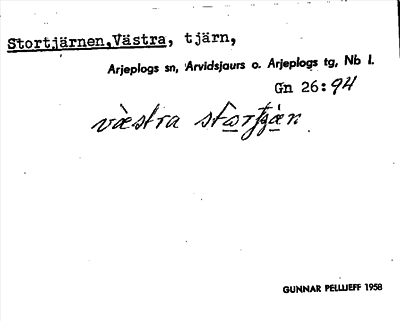 Stortjärnen,Västra, tjärn,
Arjeplogs sn, Arvidsjaurs o. Arjeplogs tg, Nb l.
Gn 26:94
västra stortjärn
GUNNAR PELLIJEFF 1958